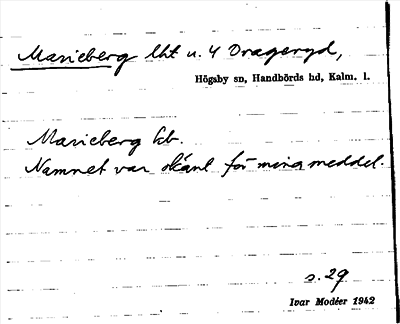 Marieberg lht u. 4 Drageryd,
Högsby sn, Handbörds hd, Kalm. l.
Marieberg kb.
Namnet var okänt för mina meddel.
s. 29
Ivar Modéer 1942